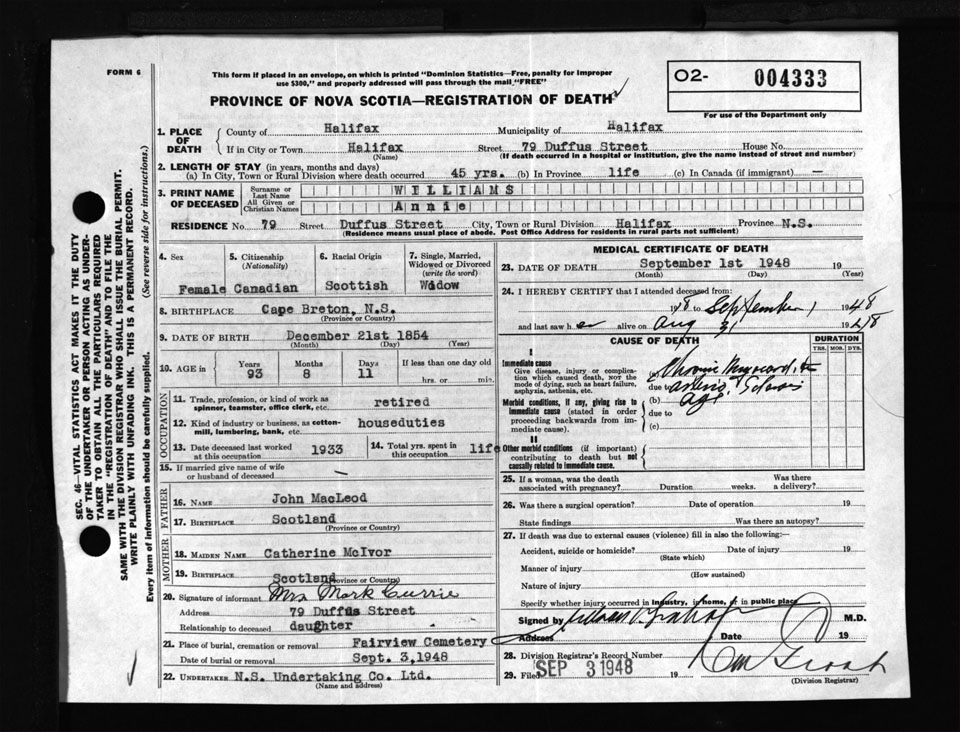 FORM 6
This form if placed in an envelope, on which is printed "Dominion Statistics—Free, penalty for improper
use $300," and properly addressed will pass through the mail "FREE"
PROVINCE OF NOVA SCOTIA—REGISTRATION OF DEATH
O2- 004333
For use of the Department only
1. PLACE OF DEATH County of Halifax Municipality of Halifax
If in City or Town Halifax Street 79 Duffus Street House No.
(Name) (If death occurred in a hospital or institution, give the name instead of street and number)
2. LENGTH OF STAY (in years, months and days)
(a) In City, Town or Rural Division where death occurred 45 yrs. (b) In Province life (c) In Canada (if immigrant) —
3. PRINT NAME OF DECEASED Surname or Last Name WILLIAMS
All Given or Christian Names Annie
RESIDENCE No. 79 Street Duffus Street City, Town or Rural Division Halifax Province N.S.
(Residence means usual place of abode. Post Office Address for residents in rural parts not sufficient)
4. Sex Female
5. Citizenship (Nationality) Canadian
6. Racial Origin Scottish
7. Single, Married, Widowed or Divorced (write the word) Widow
8. BIRTHPLACE Cape Breton, N.S.
(Province or Country)
9. DATE OF BIRTH December 21st 1854
(Month) (Day) (Year)
10. AGE in Years 93 Months 8 Days 11 If less than one day old
hrs. or min.
OCCUPATION
11. Trade, profession, or kind of work as spinner, teamster, office clerk, etc. retired
12. Kind of industry or business, as cotton-mill, lumbering, bank, etc. houseduties
13. Date deceased last worked at this occupation 1933
14. Total yrs. spent in this occupation life
15. If married give name of wife or husband of deceased
FATHER
16. NAME John MacLeod
17. BIRTHPLACE Scotland
(Province or Country)
MOTHER
18. MAIDEN NAME Catherine McIvor
19. BIRTHPLACE Scotland
(Province or Country)
20. Signature of informant Mrs Mark Currie
Address 79 Duffus Street
Relationship to deceased daughter
21. Place of burial, cremation or removal Fairview Cemetery
Date of burial or removal Sept. 3,1948
22. UNDERTAKER N.S. Undertaking Co. Ltd.
(Name and address)
MEDICAL CERTIFICATE OF DEATH
23. DATE OF DEATH September 1st 1948 19
(Month) (Day) (Year)
24. I HEREBY CERTIFY that I attended deceased from:
to September 1 1948
and last saw her alive on Aug 31 1948
CAUSE OF DEATH
DURATION
YRS. MOS. DYS.
I
Immediate cause
Give disease, injury or complication which caused death, NOT the mode of dying, such as heart failure, asphyxia, asthenia, etc.
(a) Chronic
due to
Morbid conditions, if any, giving rise to immediate cause (stated in order proceeding backwards from immediate cause).
(b) age
due to
(c)
II
Other morbid conditions (if important) contributing to death but not causally related to immediate cause.
25. If a woman, was the death associated with pregnancy? Duration weeks. Was there a delivery?
26. Was there a surgical operation? Date of operation 19
State findings Was there an autopsy?
27. If death was due to external causes (violence) fill in also the following:—
Accident, suicide or homicide? Date of injury 19
(State which)
Manner of injury
(How sustained)
Nature of injury
Specify whether injury occurred in industry, in home, or in public place
Signed by M.D.
Address Date 19
28. Division Registrar's Record Number
29. Filed SEP 3 1948 19
(Division Registrar)
SEC. 46—VITAL STATISTICS ACT MAKES IT THE DUTY
OF THE UNDERTAKER OR PERSON ACTING AS UNDER-
TAKER TO OBTAIN ALL THE PARTICULARS REQUIRED
IN THE "REGISTRATION OF DEATH" AND TO FILE THE
SAME WITH THE DIVISION REGISTRAR WHO SHALL ISSUE THE BURIAL PERMIT.
WRITE PLAINLY WITH UNFADING INK. THIS IS A PERMANENT RECORD.
Every item of information should be carefully supplied. (See reverse side for instructions.)